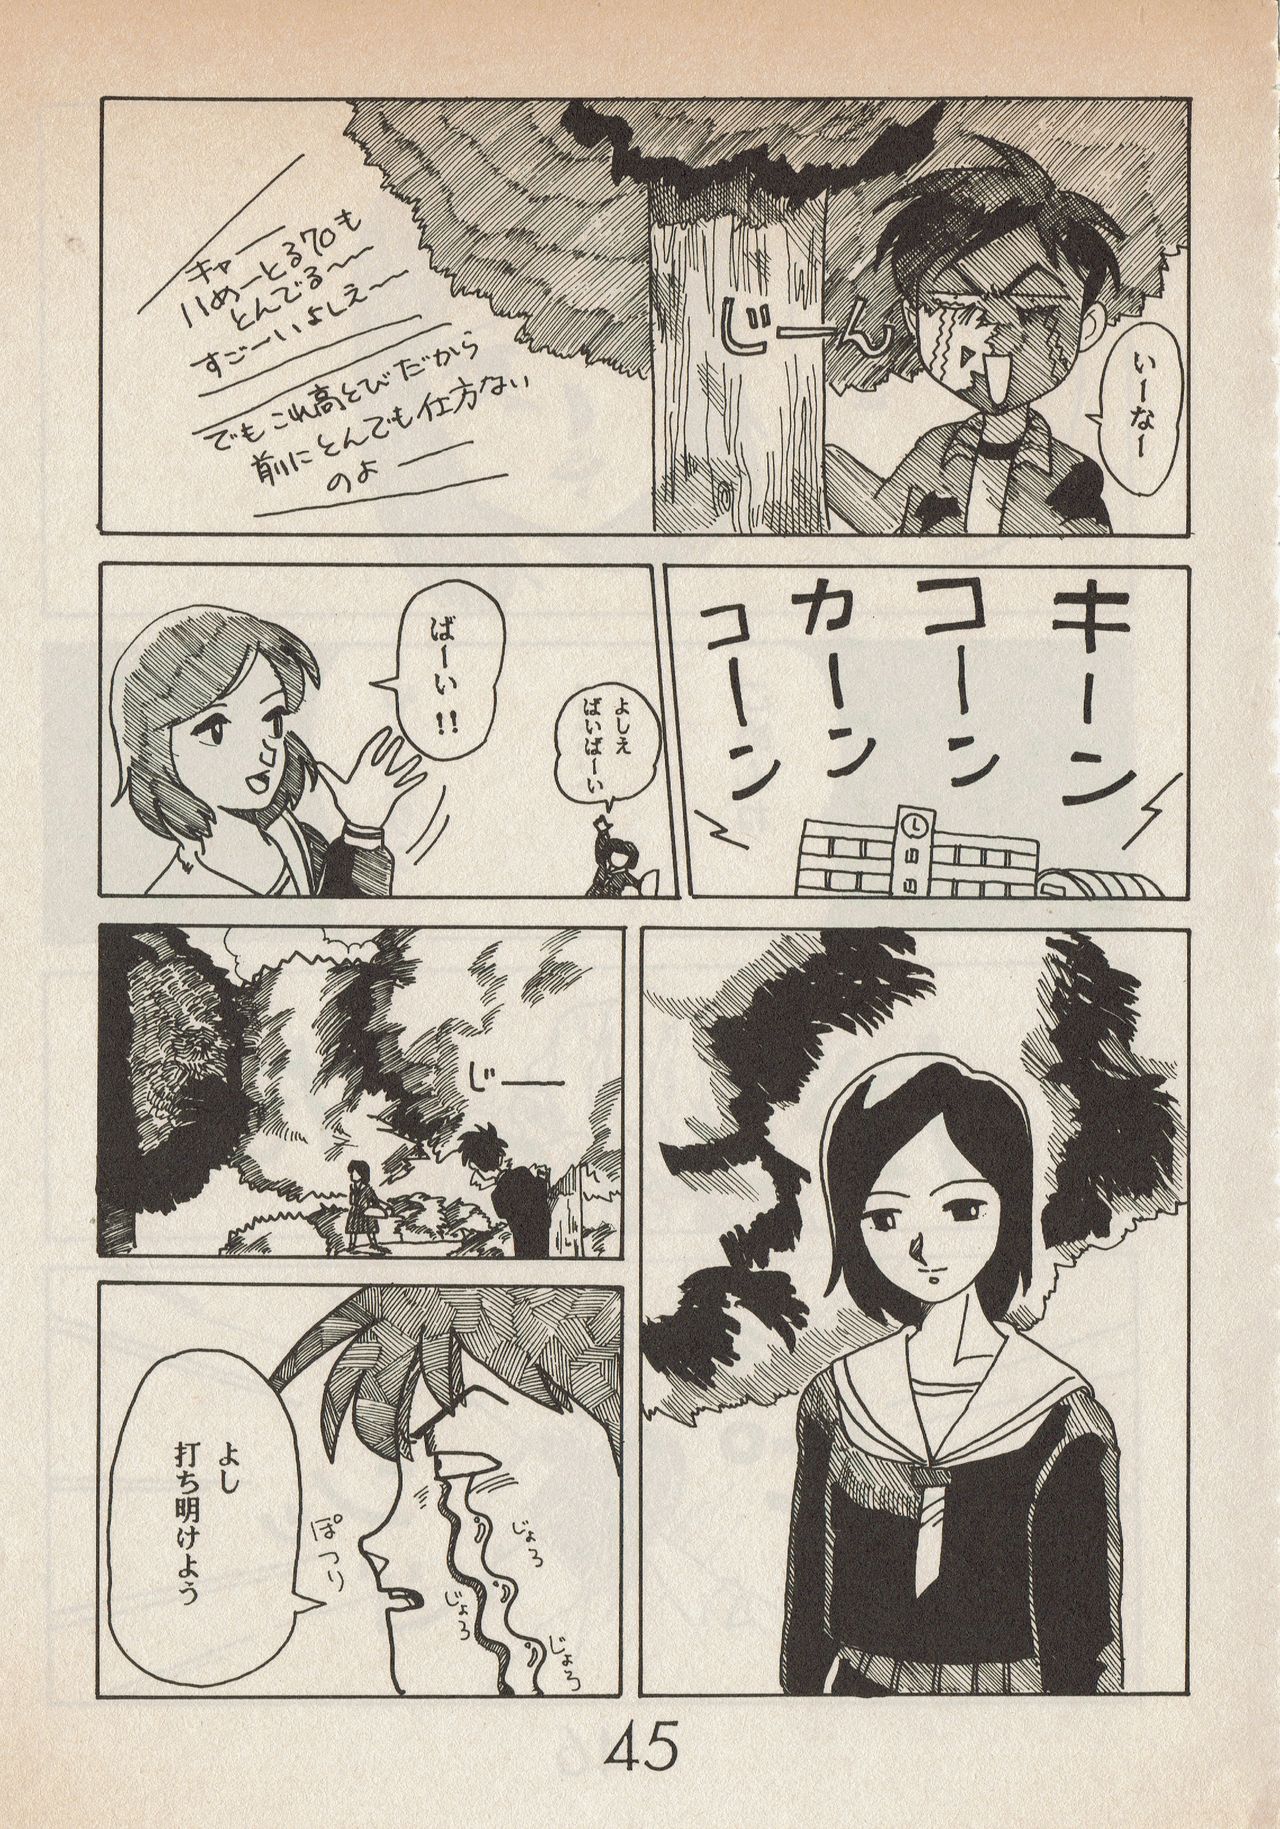 いーなー
じーん
キャー
1めーとる70も
とんでる〜〜
すごーいよしえ〜
でもこれ高とびだから
前にとんでも仕方ない
のよ――
キーン
コーン
カーン
コーン
よしえ
ばいばーい
ばーい!!
じ――
よし
打ち明けよう
ぽつり
じょろ
じょろ
じょろ
45